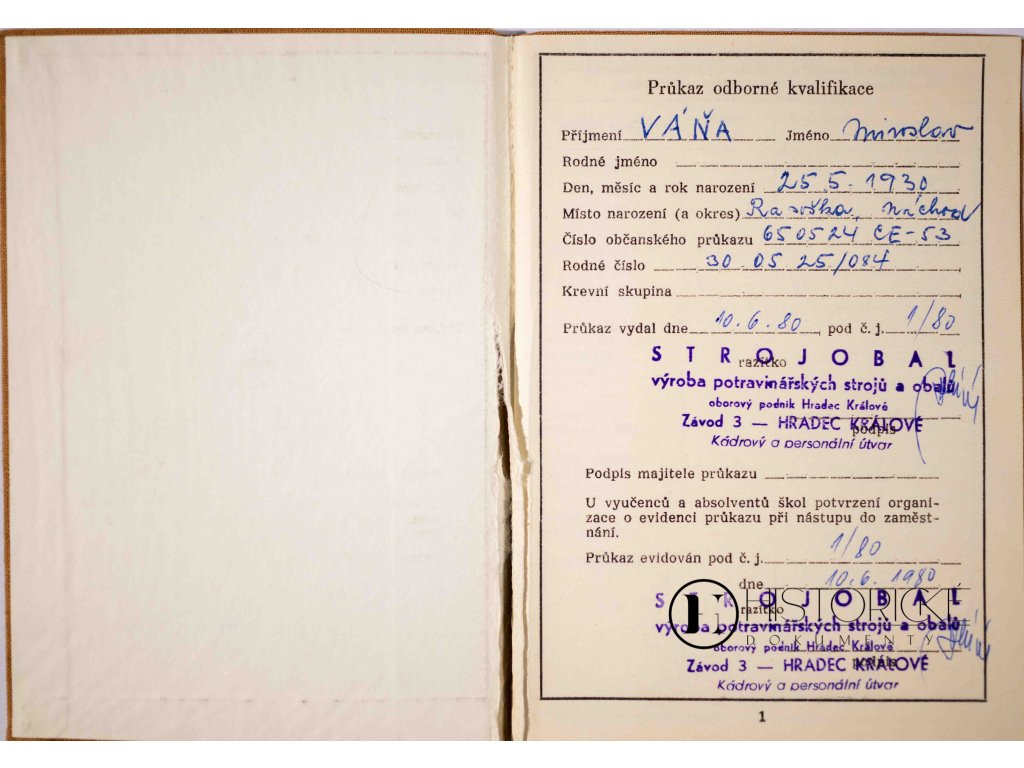 Průkaz odborné kvalifikace
Příjmení VÁŇA Jméno Miroslav
Rodné jméno
Den, měsíc a rok narození 25.5.1930
Místo narození (a okres) Rasoška, Náchod
Číslo občanského průkazu 650524 CE-53
Rodné číslo 30 05 25/084
Krevní skupina
Průkaz vydal dne 10.6.80, pod č. j. 1/80
razítko
STROJOBAL
výroba potravinářských strojů a obalů
oborový podnik Hradec Králové
Závod 3 — HRADEC KRÁLOVÉ
podpis
Kádrový a personální útvar
Podpis majitele průkazu
U vyučenců a absolventů škol potvrzení organi-
zace o evidenci průkazu při nástupu do zaměst-
nání.
Průkaz evidován pod č. j. 1/80
dne 10.6.1980
HISTORICKÉ
DOKUMENTY
STROJOBAL
razítko
výroba potravinářských strojů a obalů
oborový podnik Hradec Králové
Závod 3 — HRADEC KRÁLOVÉ
podpis
Kádrový a personální útvar
1